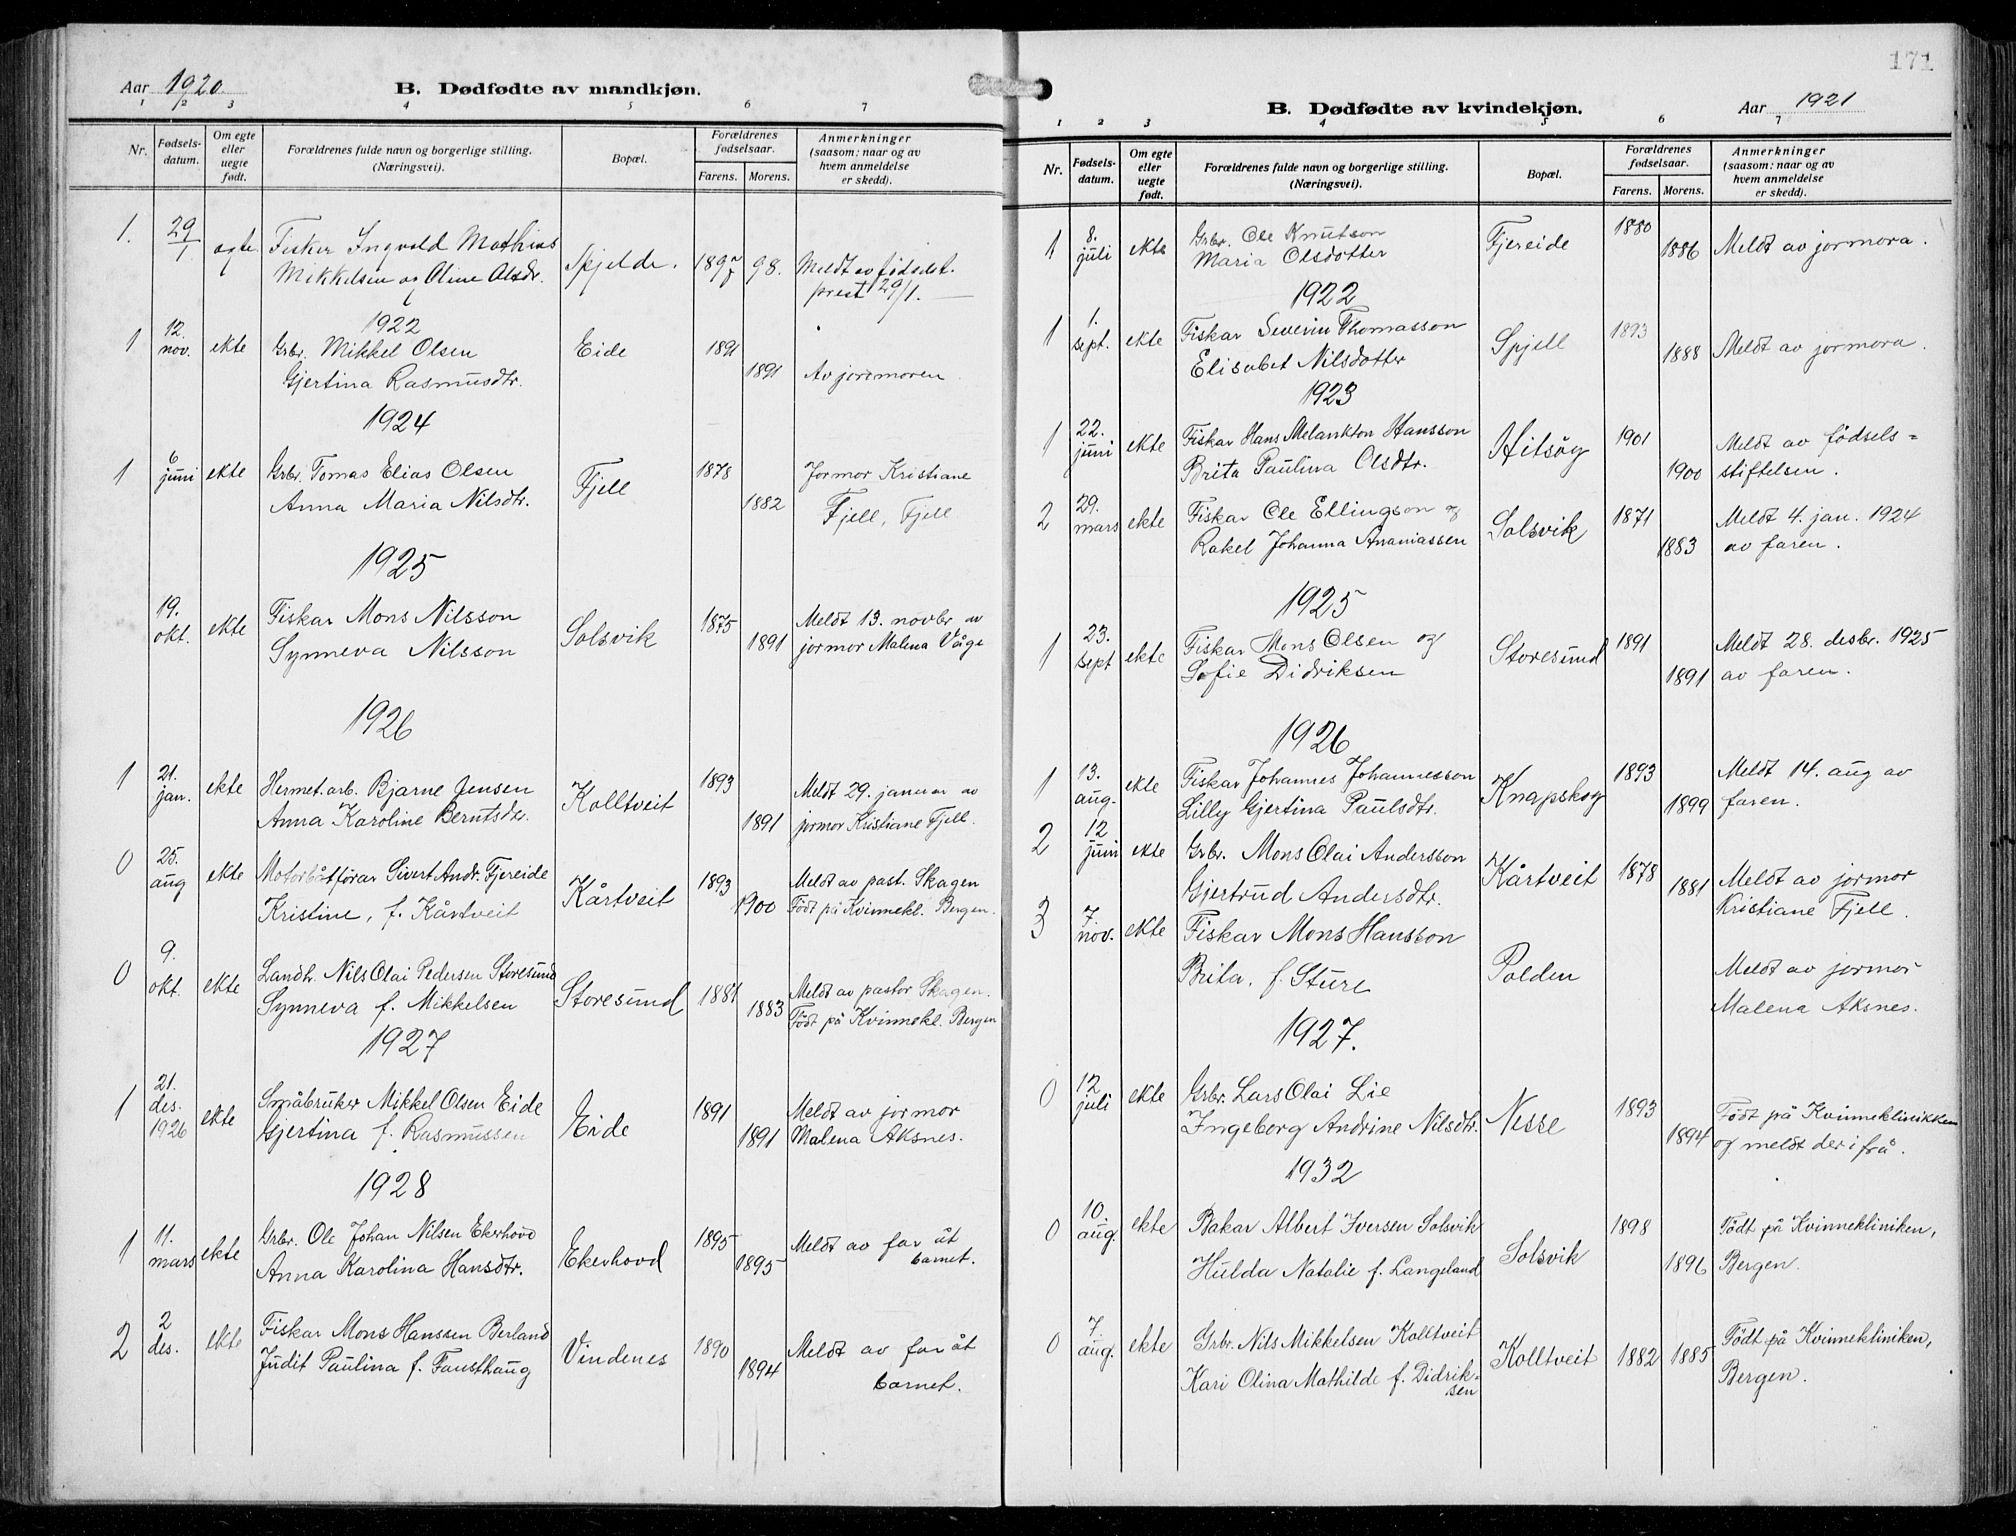 Aar 1920
B. Dødfødte av mandkjøn.
1 2 3 4 5 6 7
Nr.
Fødsels-datum.
Om egte eller uegte født.
Forældrenes fulde navn og borgerlige stilling.
(Næringsvei).
Bopæl.
Forældrenes fødselsaar.
Farens. Morens.
Anmerkninger
(saasom: naar og av
hvem anmeldelse
er skedd).
1. 29/1 egte. Fisker Ingvald Mathias Spjelde. 1897 98. Meldt av fødselst.
Mikkelsen og Oline Olsdr. prest 29/1. —
1922
1 12. nov. ekte Grbr. Mikkel Olsen Eide 1891
Gjertina Rasmusdtr. 1891 Av jordmoren
1924
1 6 juni ekte Grbr. Tomas Elias Olsen Fjell 1878 Jormor Kristiane
Anna Maria Nilsdtr. 1882 Fjell, Fjell
1925
19. okt. ekte Fiskar Mons Nilsson Solsvik 1875 Meldt 13. novbr av
Synneva Nilsson 1891 jormor Malena Våge
1926
1 21. jan. ekte Hermet.arb. Bjarne Jensen Kolltveit 1893 Meldt 29. januar av
Anna Karoline Berntsdtr. 1891 jormor Kristiane Fjell.
0 25. aug ekte Motorbåtförar Sivert Andr. Fjereide Kårtveit 1893 Meldt av past. Skagen
Kristine, f. Kårtveit 1900 Födt på Kvinnekl. Bergen.
0 9. okt. ekte Landh. Nils Olai Pedersen Storesund Storesund 1881 Meldt av pastor Skagen.
Synneva f. Mikkelsen 1883 Födt på Kvinnekl. Bergen
1927
1 21. des. 1926 ekte Småbruker Mikkel Olsen Eide Eide 1891 Meldt av jormor
Gjertina f. Rasmussen 1891 Malena Aksnes.
1928
1 11. mars ekte Grbr. Ole Johan Nilsen Ekerhovd Ekerhovd 1895 Meldt av far åt
Anna Karolina Hansdtr. 1895 barnet.
2 2 des. ekte Fiskar Mons Hanssen Berland Vindenes 1890 Meldt av far åt
Judit Paulina f. Fausthaug 1894 barnet.
171
B. Dødfødte av kvindekjøn.
Aar 1921
1 2 3 4 5 6 7
Nr.
Fødsels-datum.
Om egte eller uegte født.
Forældrenes fulde navn og borgerlige stilling.
(Næringsvei).
Bopæl.
Forældrenes fødselsaar.
Farens. Morens.
Anmerkninger
(saasom: naar og av
hvem anmeldelse
er skedd).
1 8. juli ekte Grbr. Ole Knutson Fjereide 1880
Maria Olsdotter 1886 Meldt av jormora.
1922
1 1. sept. ekte Fiskar Severin Thomasson Spjell 1893
Elisabet Nilsdotter 1888 Meldt av jormora.
1923
1 22. juni ekte Fiskar Hans Melankton Hansson Hitsöy 1901 Meldt av födsels=
Brita Paulina Olsdtr. 1900 stiftelsen.
2 29. mars ekte Fiskar Ole Ellingson og Solsvik 1871 Meldt 4. jan. 1924
Rakel Johanna Ananiassen 1883 av faren.
1925
1 23. sept ekte Fiskar Mons Olsen og Storesund 1891 Meldt 28. desbr. 1925
Sofie Didriksen 1891 av faren.
1926
1 13. aug. ekte Fiskar Johannes Johannesson Knapskog 1893 Meldt 14. aug av
Lilly Gjertina Paulsdtr. 1899 faren.
2 12 juni ekte Grbr. Mons Olai Andersson Kårtveit 1878 Meldt av jormor
Gjertrud Andersdtr. 1881 Kristiane Fjell.
3 7. nov. ekte Fiskar Mons Hansson
Brita, f. Sture Polden Meldt av jormor
Malena Aksnes.
1927.
0 12 juli ekte Grbr. Lars Olai Lie Nesse 1893 Födt på Kvinneklinikken
Ingeborg Andrine Nilsdtr. 1894 og meldt derifrå.
1932
0 10. aug. ekte Bakar Albert Iversen Solsvik Solsvik 1898 Födt på Kvinnekliniken,
Hulda Natalie f. Langeland 1896 Bergen.
0 7. aug. ekte Grbr. Nils Mikkelsen Kolltveit Kolltveit 1882 1885 Födt på Kvinnekliniken,
Kari Olina Mathilde f. Didrik-sen Bergen.